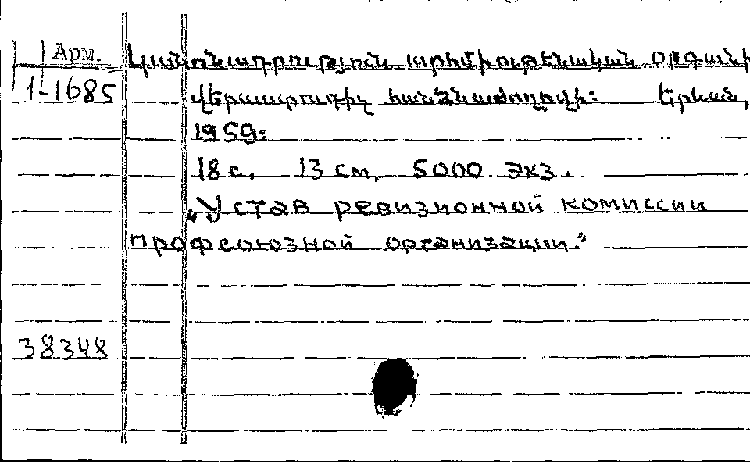 Арм. Կանոնադրություն արհմիութենական օրգանի
1-1685 վերաստուգիչ հանձնաժողովի: Երևան,
1959:
18 с. 13 см. 5000 экз.
„Устав ревизионной комиссии
профсоюзной организации.“
38348